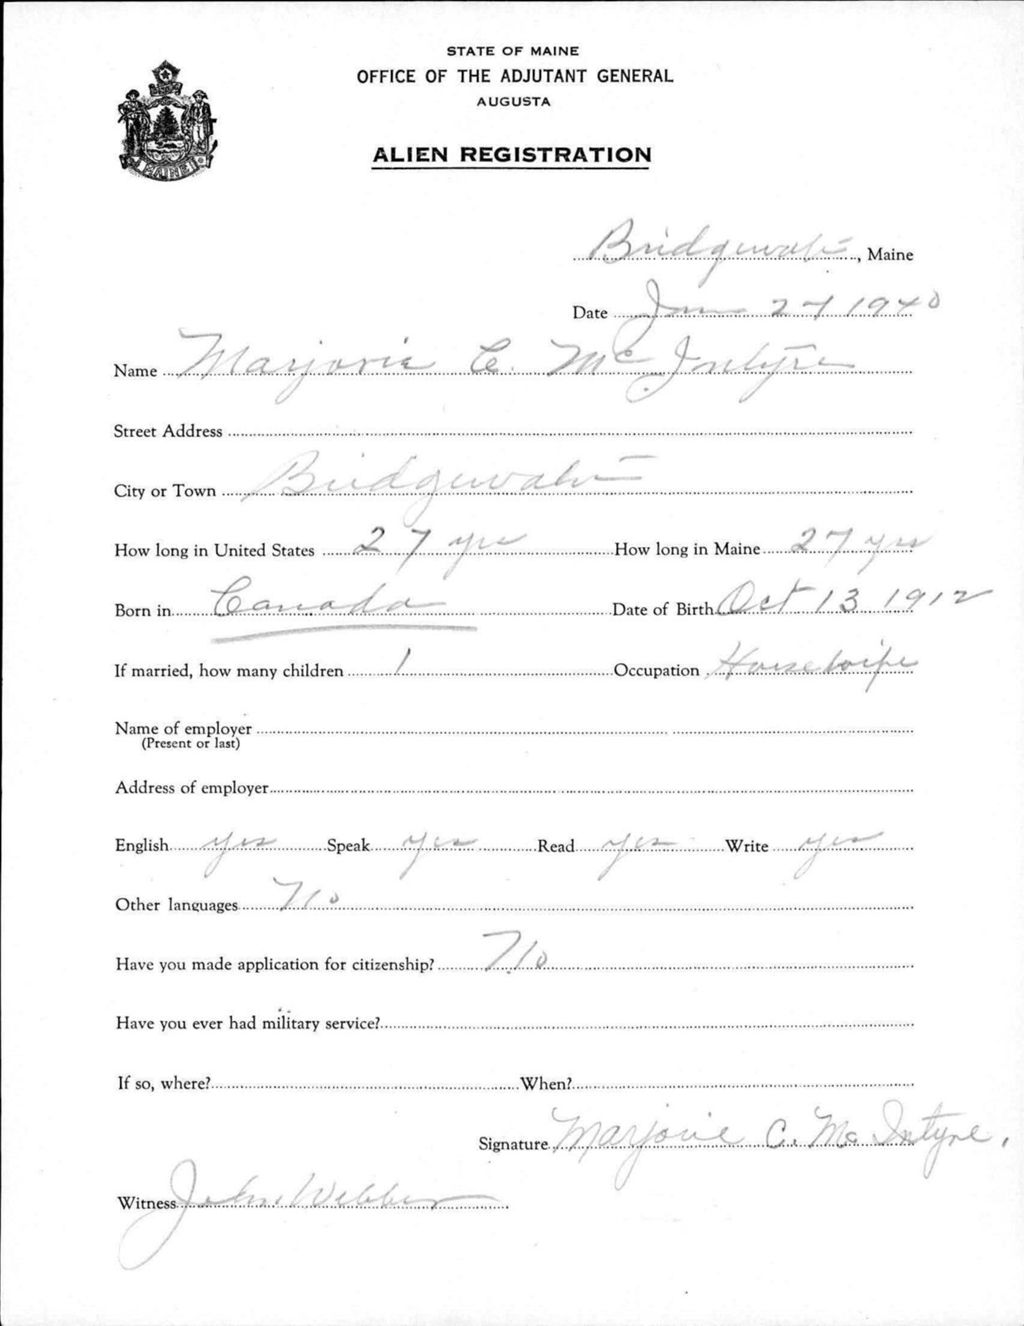 STATE OF MAINE
OFFICE OF THE ADJUTANT GENERAL
AUGUSTA
ALIEN REGISTRATION
MAINE
Bridgewater, Maine
Date June 27 1940
Name Marjorie C. McIntyre
Street Address
City or Town Bridgewater
How long in United States 27 yrs How long in Maine 27 yrs
Born in Canada Date of Birth Oct 13 1912
If married, how many children 1 Occupation Housewife
Name of employer
(Present or last)
Address of employer
English yes Speak yes Read yes Write yes
Other languages No
Have you made application for citizenship? No
Have you ever had military service?
If so, where? When?
Signature Marjorie C. McIntyre.
Witness John Webber